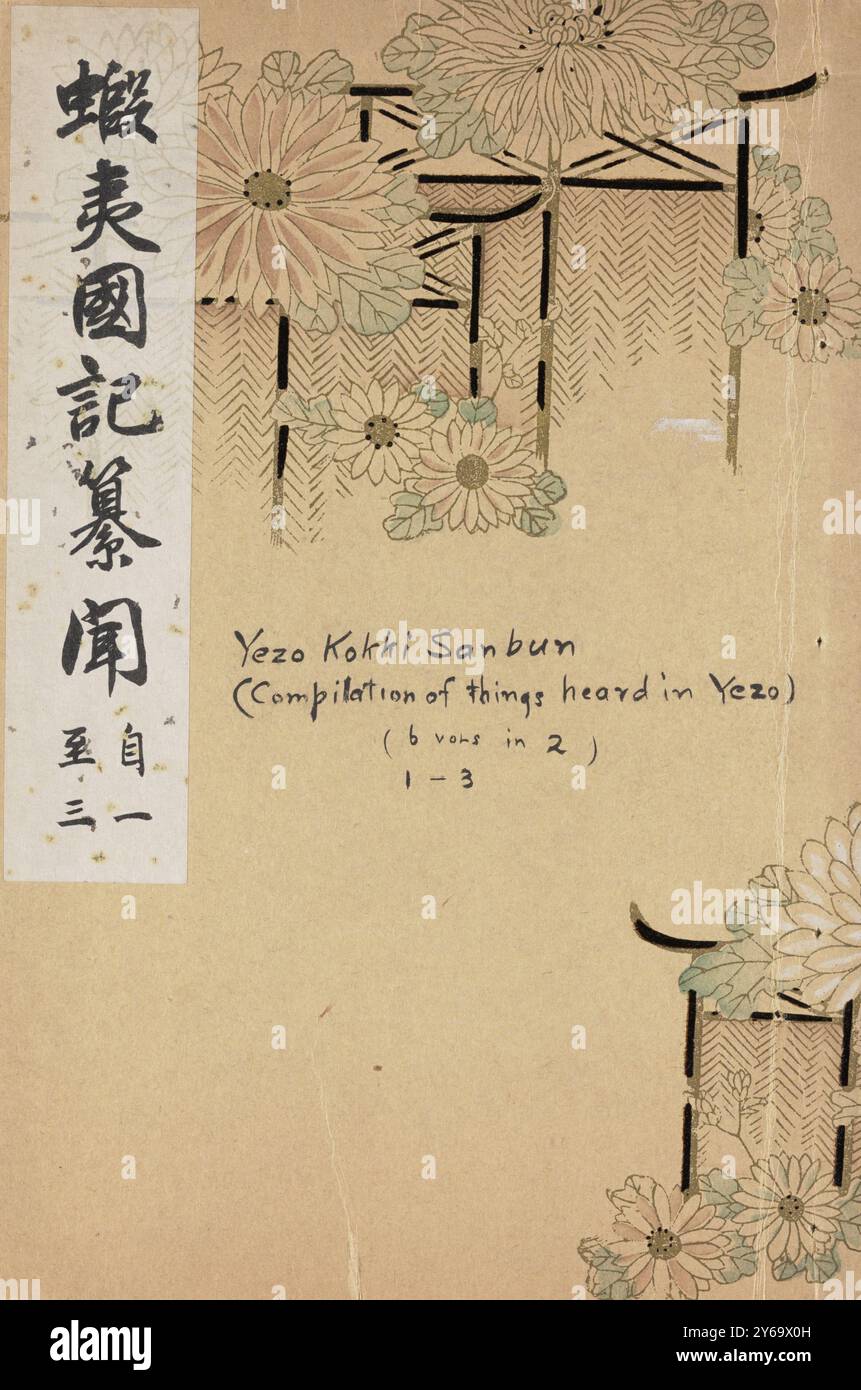 蝦夷國記纂聞
自一
至三
Yezo Kokki Sanbun
(Compilation of things heard in Yezo)
(6 vols in 2)
1 - 3
alamy
Image ID: 2Y69X0H
www.alamy.com